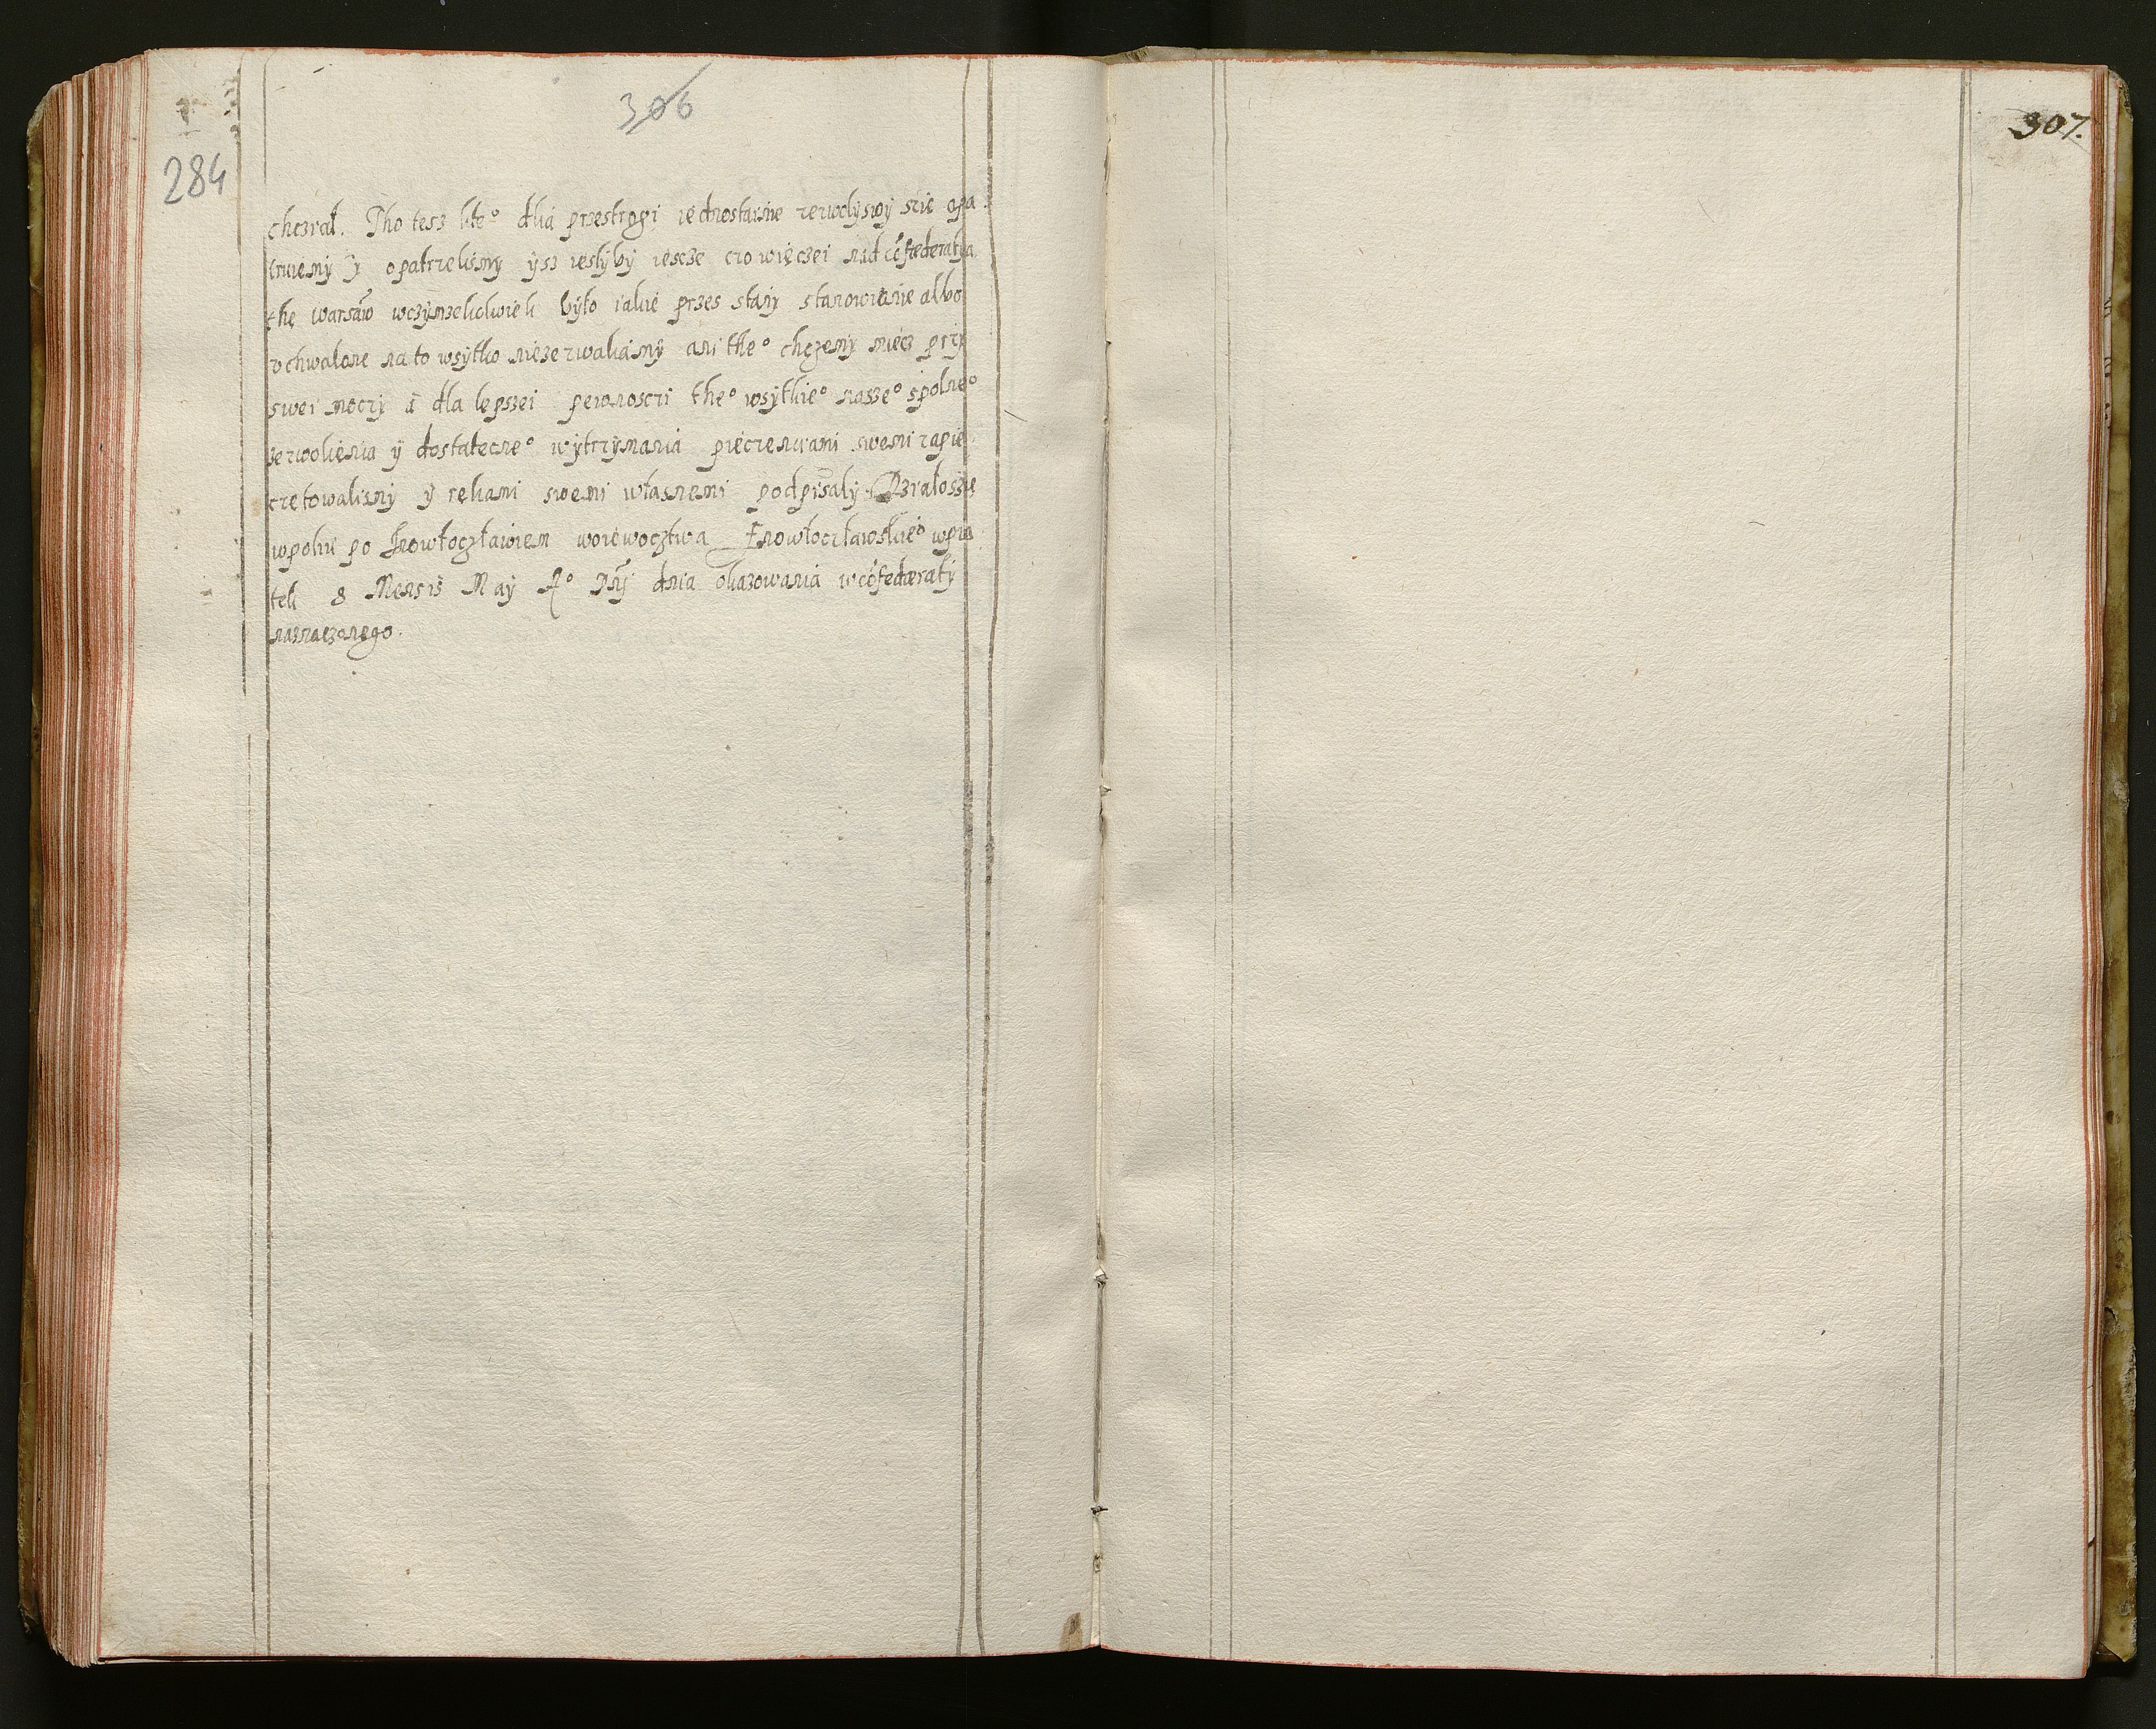 306
284
307.
chczial. Tho tesz kte° dlia przestrogi iednostainie zezwoliswy szie opa
truiemy y opatrzelismy ysz iesliby iescze czo więczei nád cõfæderatią
thę warsáw wczymzekolwiek było iakie przes stany stanowienie albo
vchwalone na to wsytko niezezwaliamy ani the° chczemy miecz przy
swei moczy á dla lepszei pewnosczi the° wsytkie° nasze° spolne°
zezwolienia y dostateczne° wytrzymania pieczenciami swemi zapie
czętowalismy y rękami swemi własnemi podpisaly. Dzialoszię
wpoliu po Inowłoczławiem woiewocztwa Inowłoczławskie° wpią
tek 8 Mensis May A° Dnj dnia okazowania wcõfæderaty
naznaczonego.